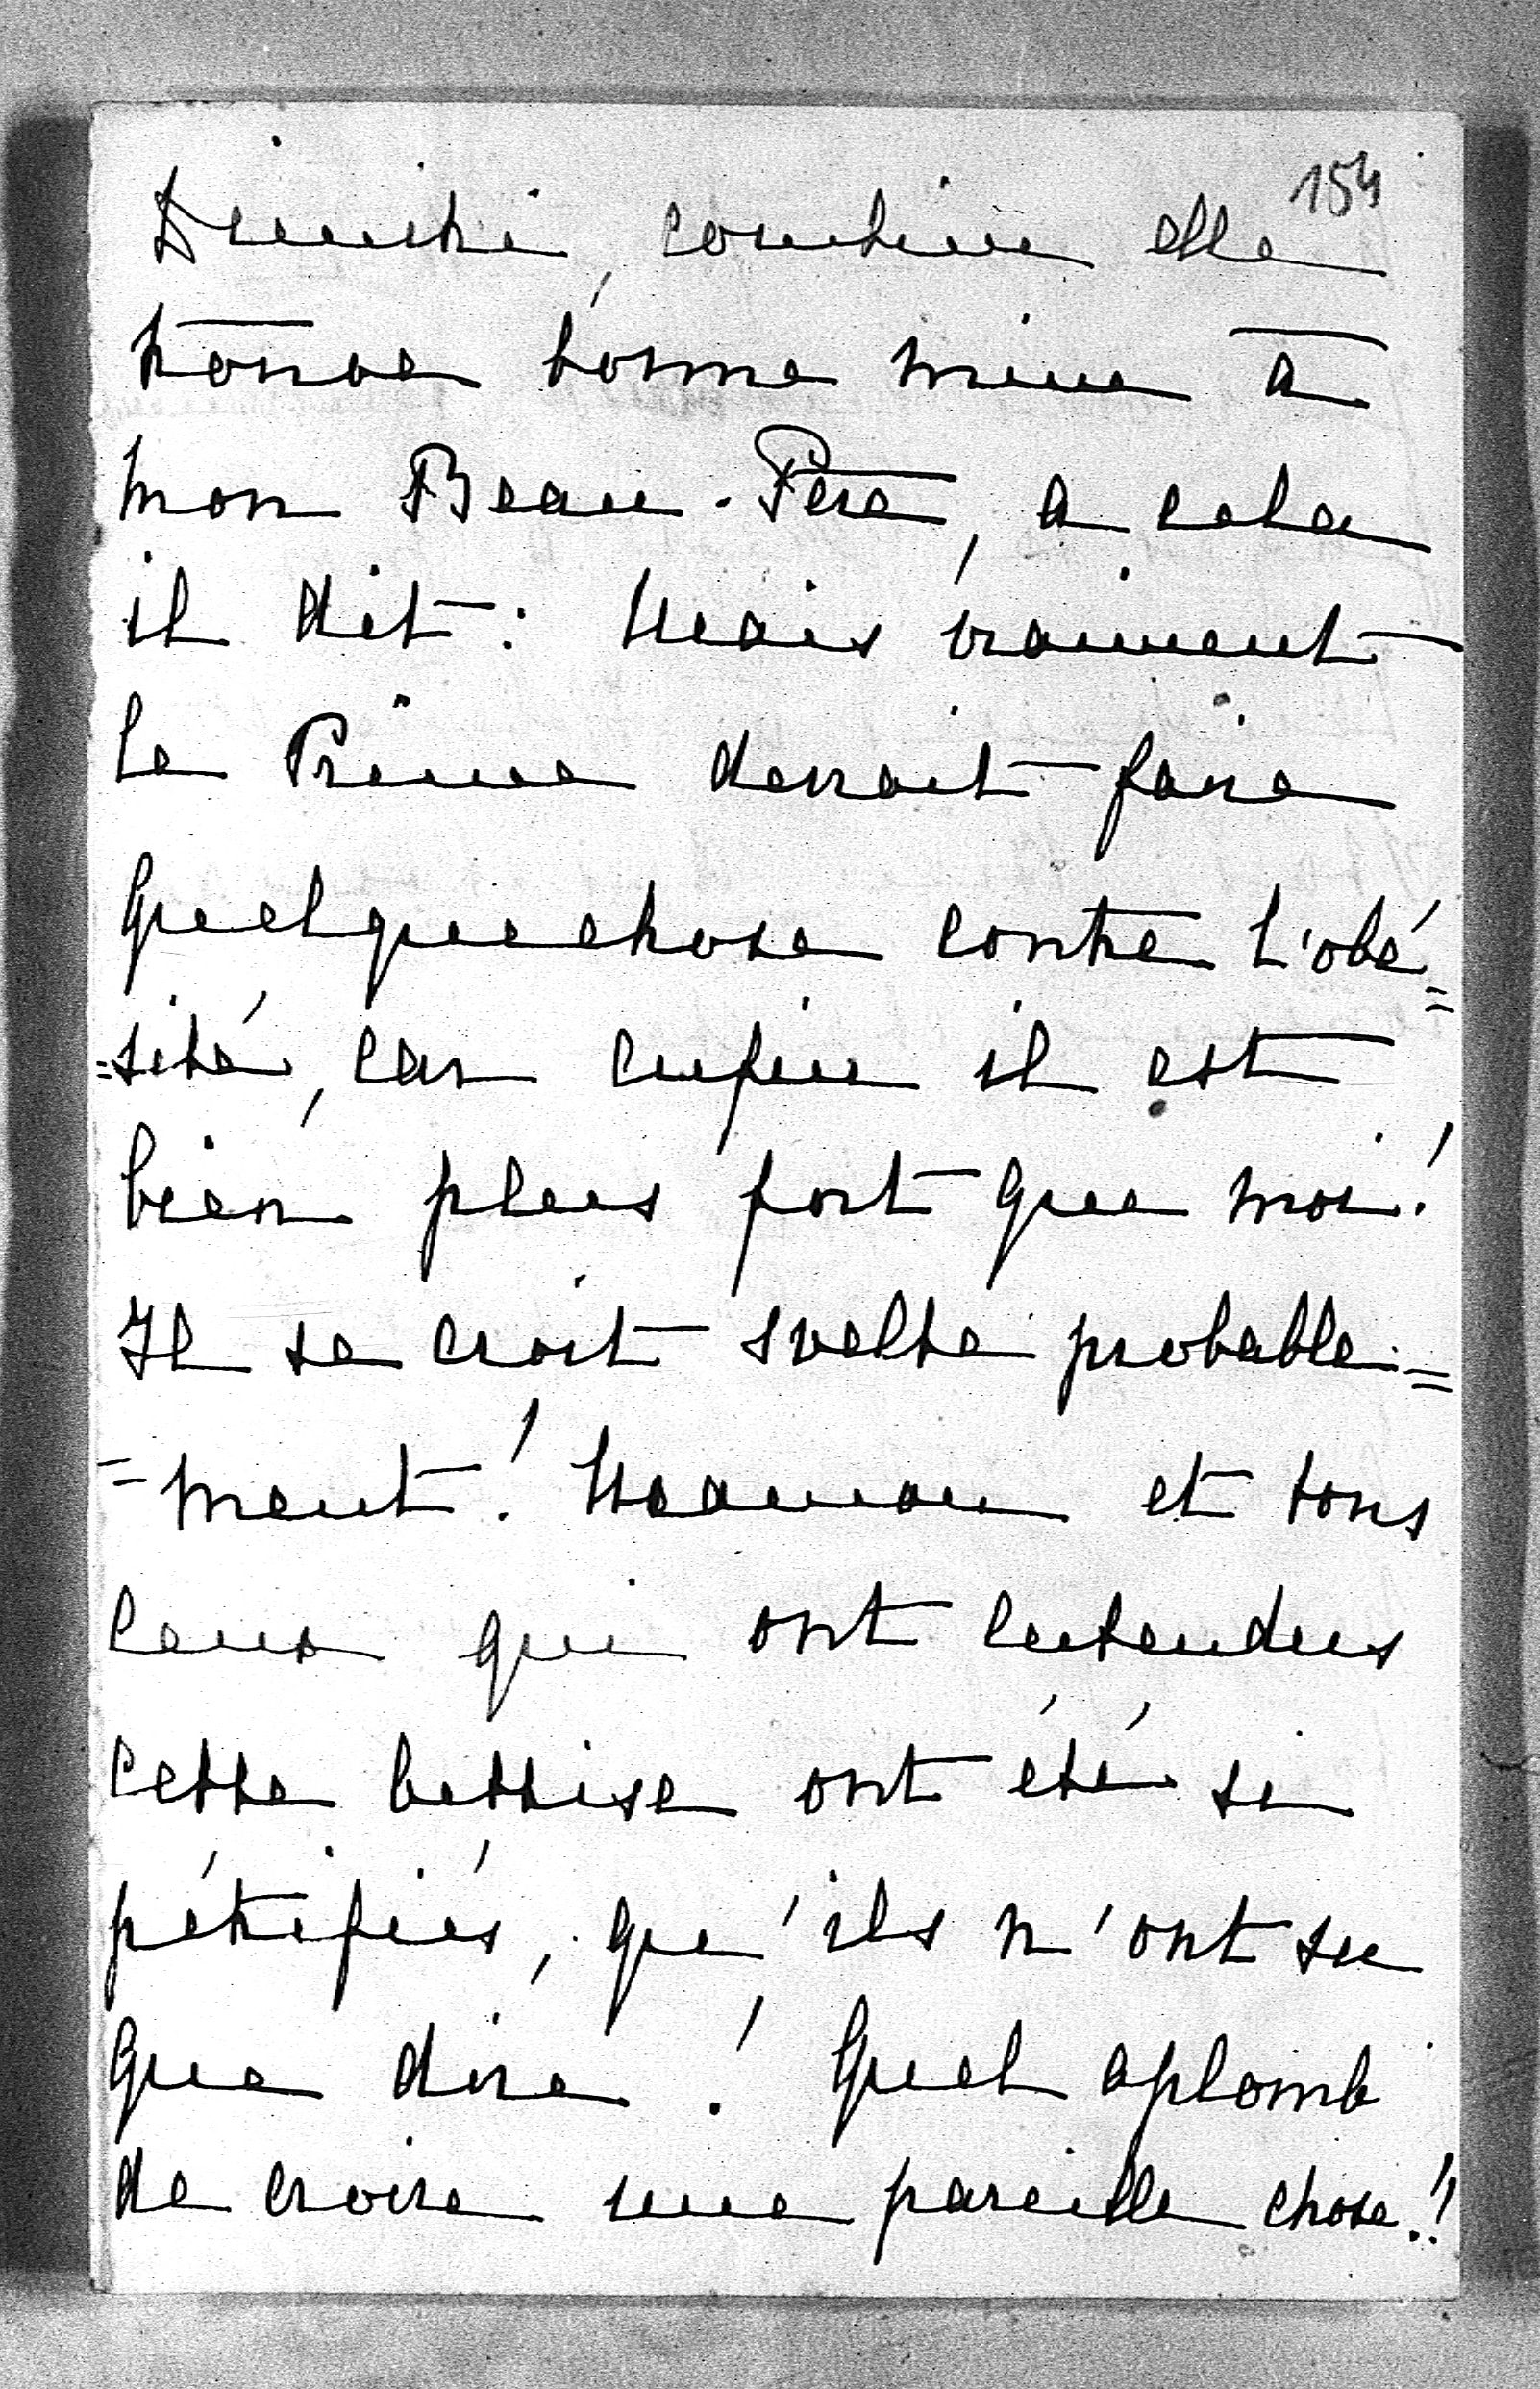 154
Dimitri, combien elle
trouve bonne mine à
mon Beau-Père, a cela
il dit: Mais vraiment
le Prince devrait faire
quelquechose contre l'obé=
=sité, car enfin il est
bien plus fort que moi!
Il se croit svelte probable=
=ment! Maman et tous
ceux qui ont entendus
cette bettise ont été si
pétrifiés, qu'ils n'ont su
que dire! Quel aplomb
de croire une pareille chose!!